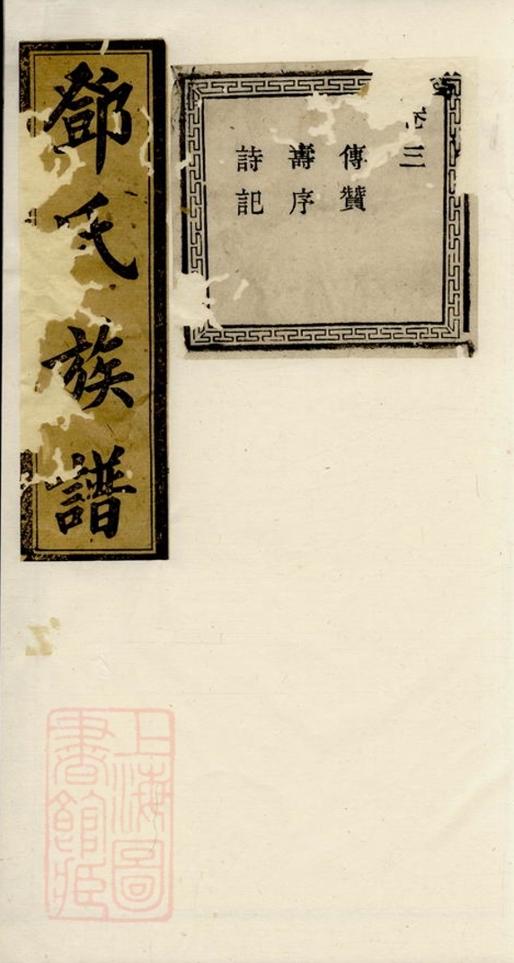 鄧氏族譜
卷三
傳贊
壽序
詩記
上海圖
書館藏